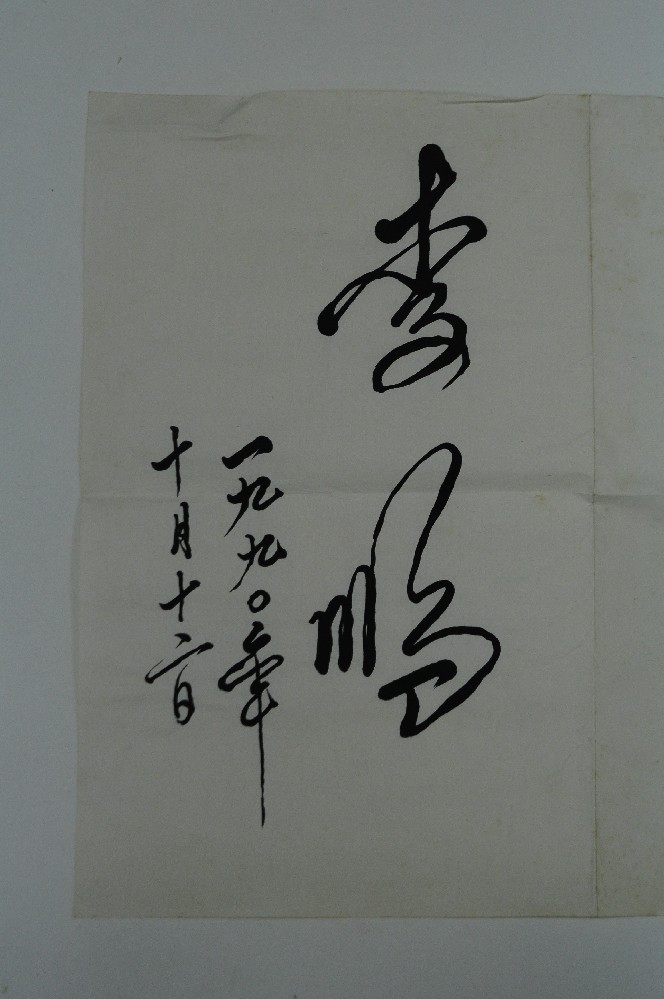 李鹏
一九九〇年
十月十六日